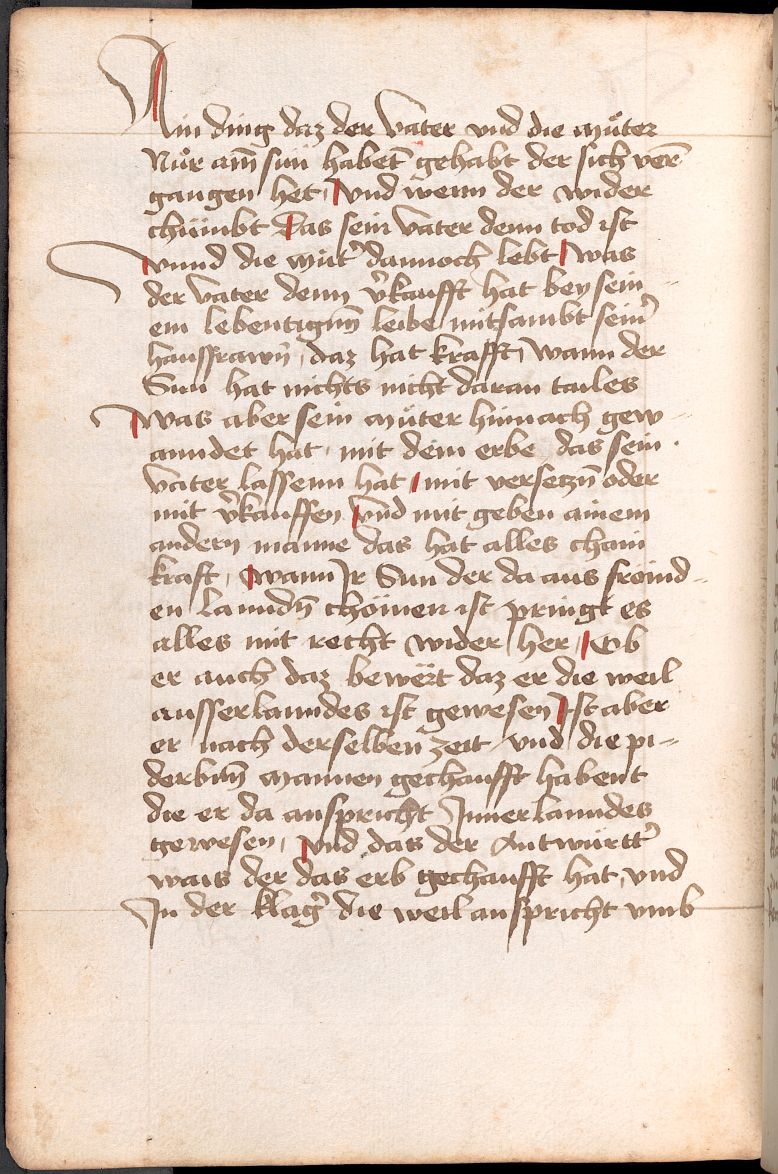 Ain ding daz der vater vnd die můter
Nůr ain̄ sun habēt gehabt der sich ver̄
gangen het, vnd wenn der wider
chůmbt Das sein vater denn tod ist
vnnd die můt̓ dannoch lebt was
der vater denn v̓kaufft hat bey sein-
em lebentigm̄ leibe mitsambt sein̓
haussfrawn̄, daz hat krafft, wann der
Sun hat nichts nicht daran tailes
was aber sein můter hinnach gew-
anndet hat, mit dem erbe das sein
vater lassenn hat, mit versetzn̄ oder
mit v̓kauffen vnd mit geben ainem
andern manne das hat alles chain
kraft, wann Ir Sun der da aus frömd-
en Lanndn̄ chömen ist pringt es
alles mit recht wider her, Ob
er auch daz bewërt daz er die weil
ausserlanndes ist gewesen Ist aber
er nach derselben zeit, vnd die pi-
derbm̄ mannen gechaufft habent
die er da anspricht Innerlanndes
gewesen, vnd das der Antwürtt̓
wais der das erb gechaufft hat, vnd
In der klag̓ die weil anspricht vmb